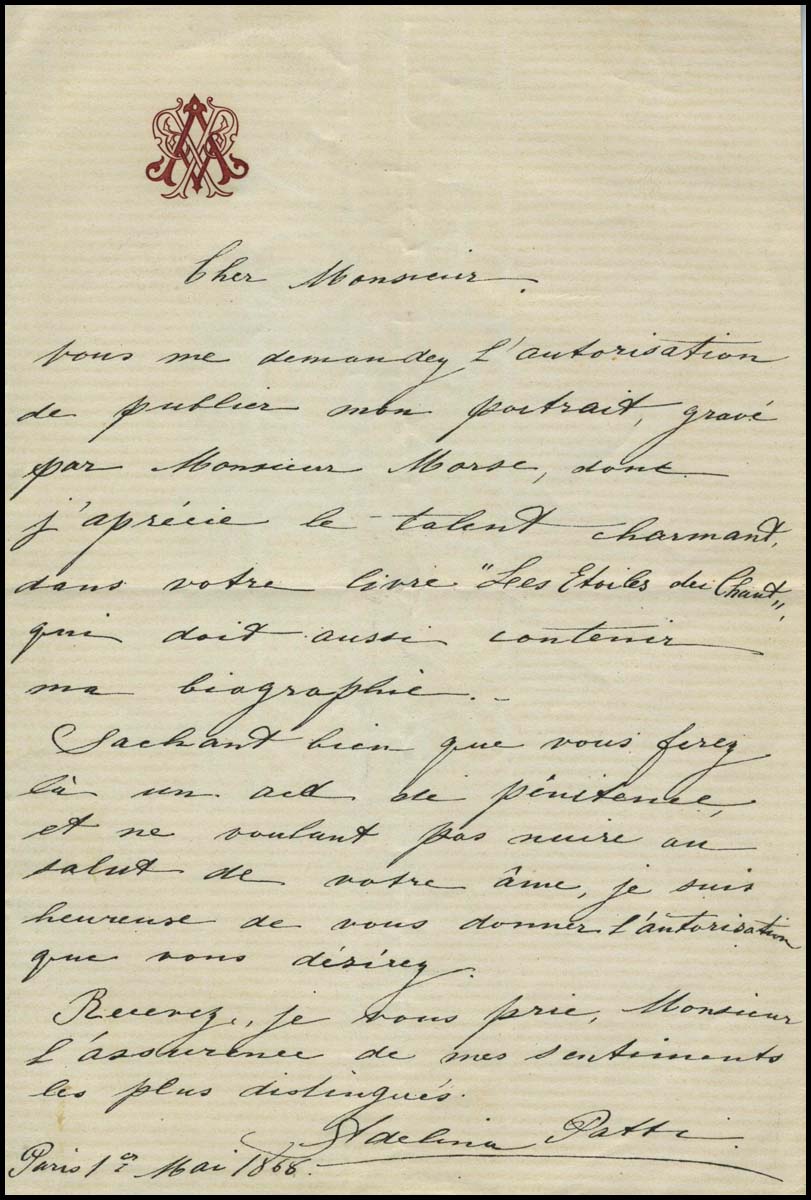 Cher Monsieur.
Vous me demandez l'autorisation
de publier mon portrait, gravé
par Monsieur Morse, dont
j'aprécie le talent charmant,
dans votre livre "Les Etoiles du Chant",
qui doit aussi contenir
ma biographie.
Sachant bien que vous ferez
là un act de pénitence,
et ne voulant pas nuire au
salut de votre âme, je suis
heureuse de vous donner l'autorisation
que vous désirez.
Recevez, je vous prie, Monsieur
l'assurence de mes sentiments
les plus distingués.
Adelina Patti.
Paris 1er Mai 1868.